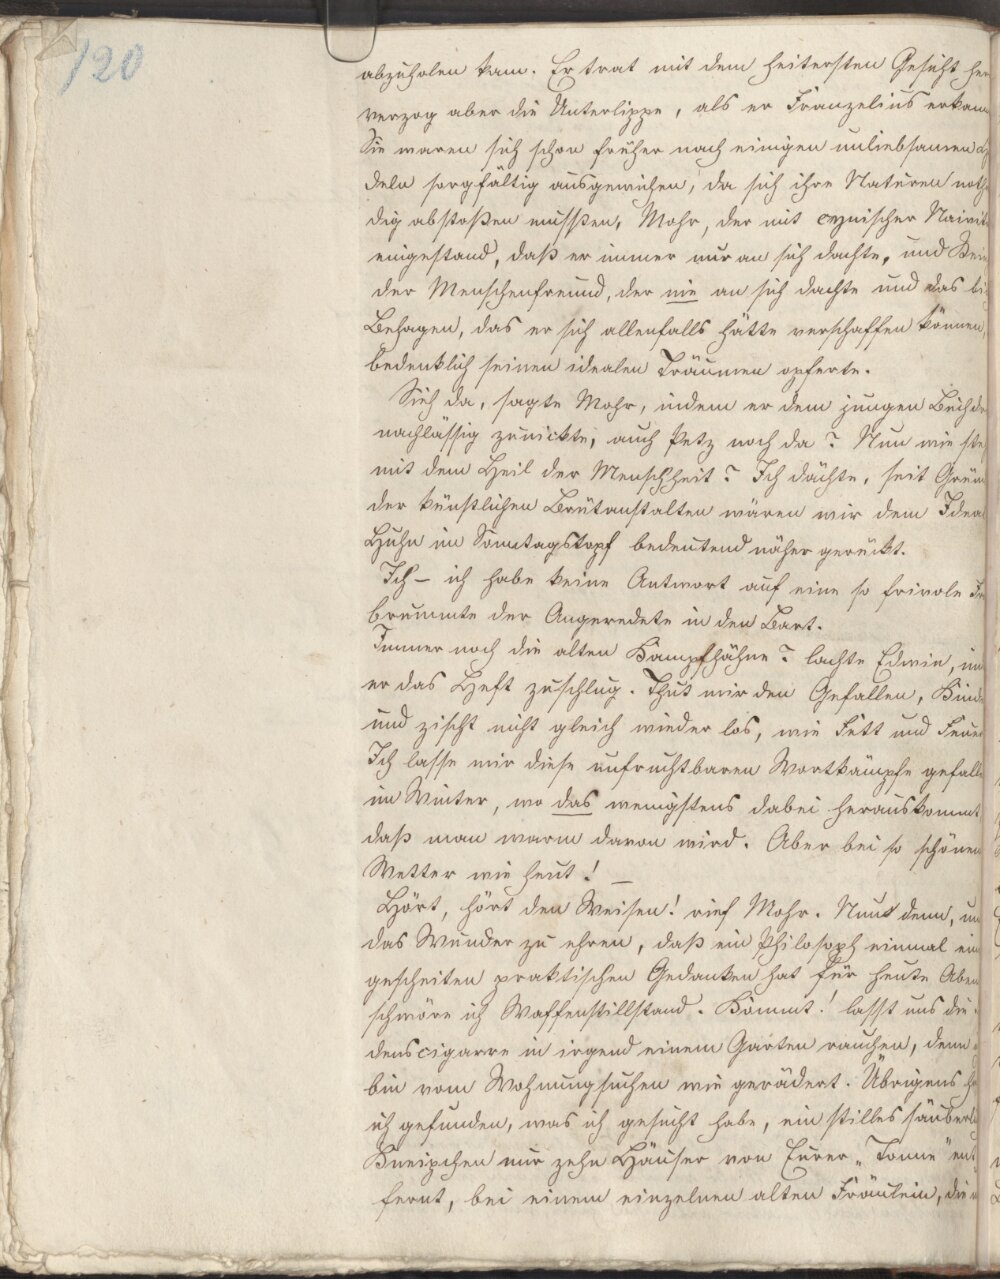 120
abzuholen kam. Er trat mit dem heitersten Gesicht her
verzog aber die Unterlippe, als er Franzelius erkann
Sie waren sich schon früher nach einigen unliebsamen
deln sorgfältig ausgewichen, da sich ihre Naturen noth
dig abstoßen mußten, Mohr, der mit cynischer Naivit
eingestand, daß er immer nur an sich dachte, und
der Menschenfreund, der nie an sich dachte und das bi
Behagen, das er sich allenfalls hätte verschaffen können,
bedenklich seinen idealen Träumen opferte.
Sieh da, sagte Mohr, indem er dem jungen Buchdr
nachlässig zunickte, auch Petz noch da? Nun wie ste
mit dem Heil der Menschheit? Ich dächte, seit Grün
der künstlichen Brütanstalten wären wir dem Idea
Huhn im Sonntagstopf bedeutend näher gerückt.
Ich – ich habe keine Antwort auf eine so frivole Fr
brummte der Angeredete in den Bart.
Immer noch die alten Kampfhähne? lachte Edwin, in
er das Heft zuschlug. Thut mir den Gefallen, Kind
und zischt nicht gleich wieder los, wie Fett und Feuer
Ich lasse mir diese unfruchtbaren Wortkämpfe gefall
im Winter, wo das wenigstens dabei herauskommt
daß man warm davon wird. Aber bei so schönen
Wetter wie heut! –
Hört, hört den Weisen! rief Mohr. Nun denn, um
das Wunder zu ehren, daß ein Philosoph einmal ein
gescheiten praktischen Gedanken hat für heute Aben
schwöre ich Waffenstillstand. Kommt! lasst uns die
denscigarre in irgend einem Garten rauchen, denn
bin vom Wohnungsuchen wie gerädert. Übrigens ha
ich gefunden, was ich gesucht habe, ein stilles säuberl
Kneipchen nur zehn Häuser von Eurer „Tonne" ent
fernt, bei einem einzelnen alten Fräulein, die